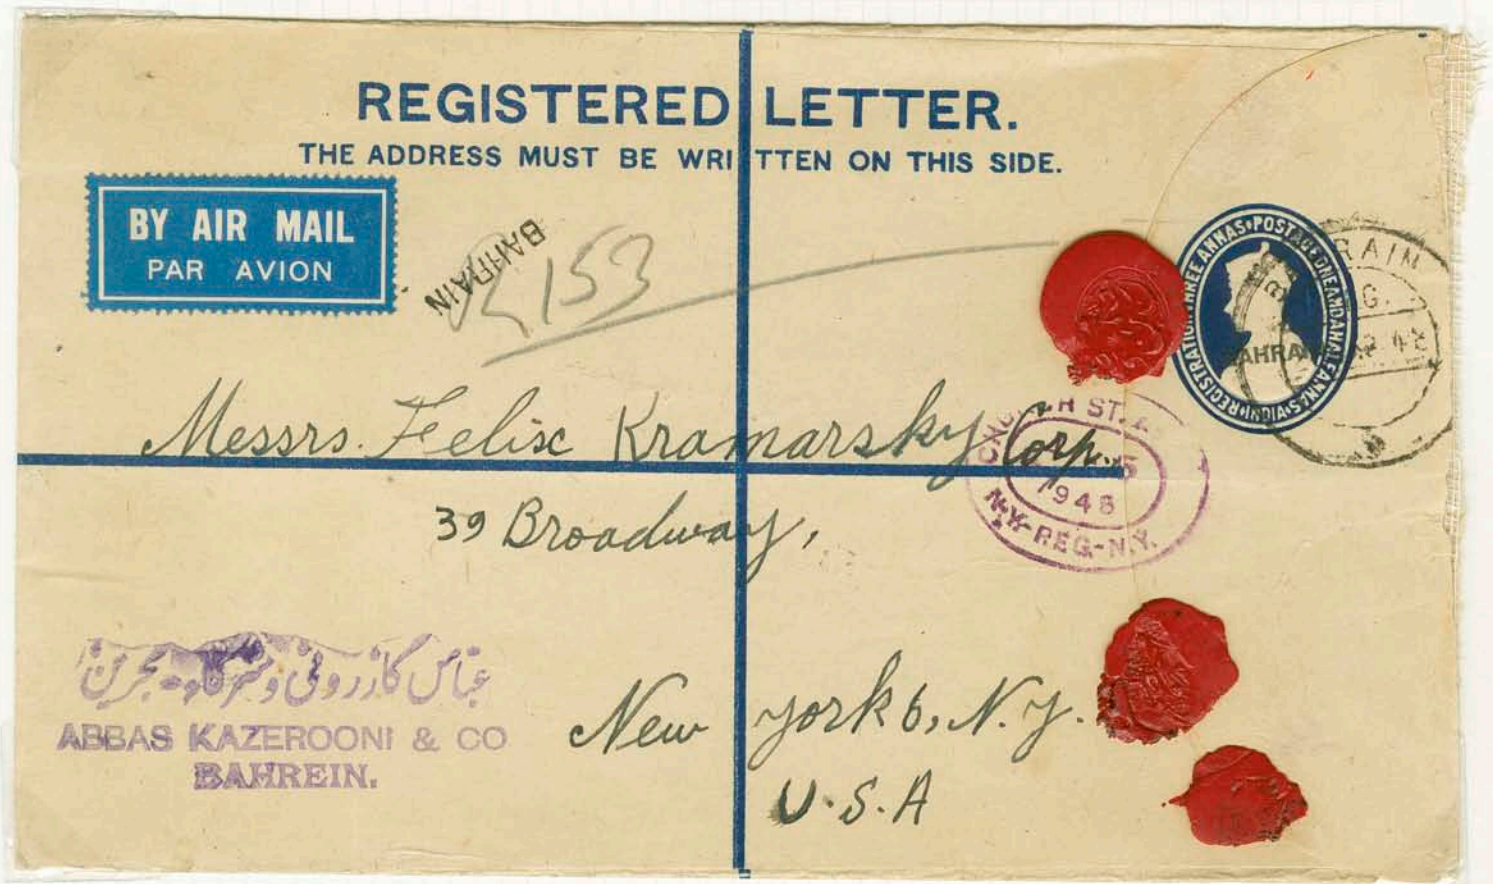 REGISTERED LETTER.
THE ADDRESS MUST BE WRITTEN ON THIS SIDE.
BY AIR MAIL
PAR AVION
BAHRAIN
R 153
REGISTRATION THREE ANNAS • POSTAGE ONE AND A HALF ANNAS • INDIA •
BAHRAIN
RAIN
Messrs. Felix Kramarsky Corp.
39 Broadway,
New York 6, N.Y.
U.S.A
CHURCH ST.
1948
N.Y. REG-N.Y.
عباس کازرونی وشرکاه - بحرین
ABBAS KAZEROONI & CO
BAHREIN.